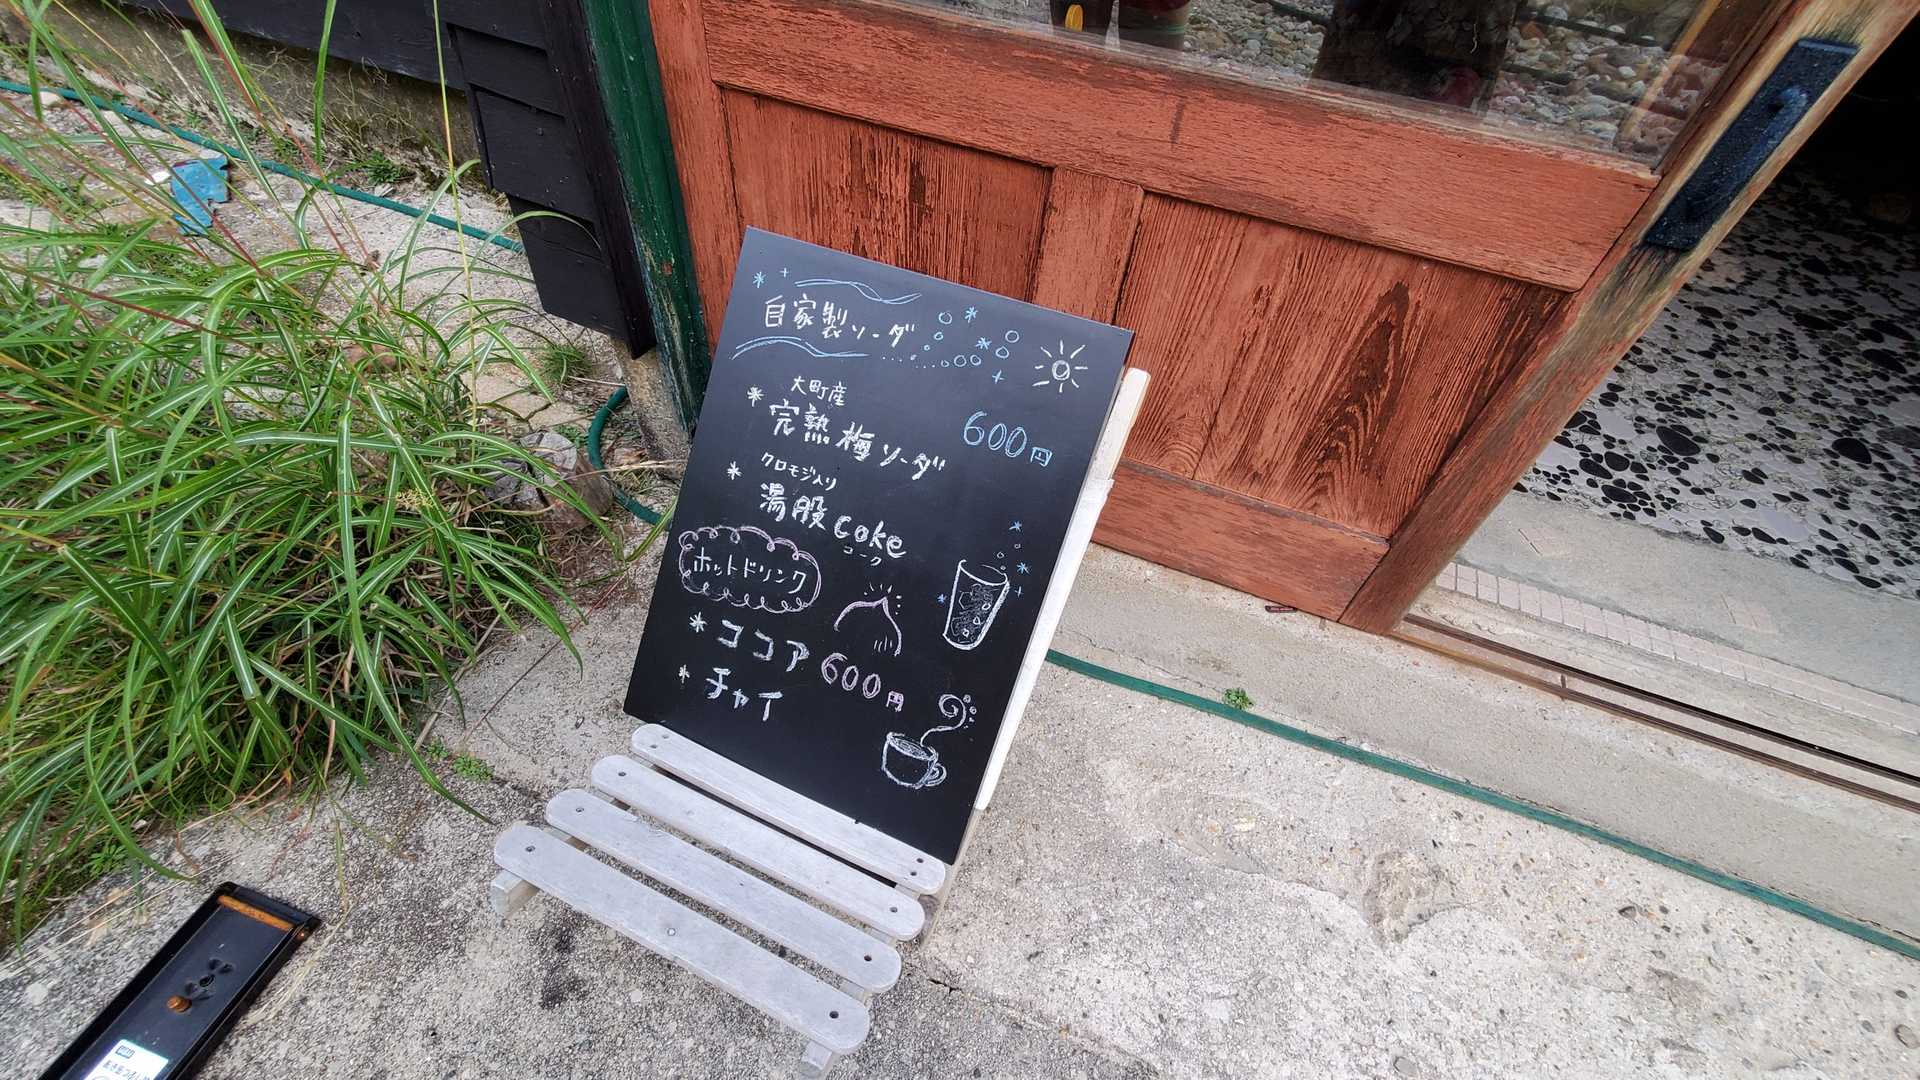 自家製ソーダ
大町産
完熟梅ソーダ
600円
クロモジ入り
湯股coke
コーク
ホットドリンク
ココア
600円
チャイ